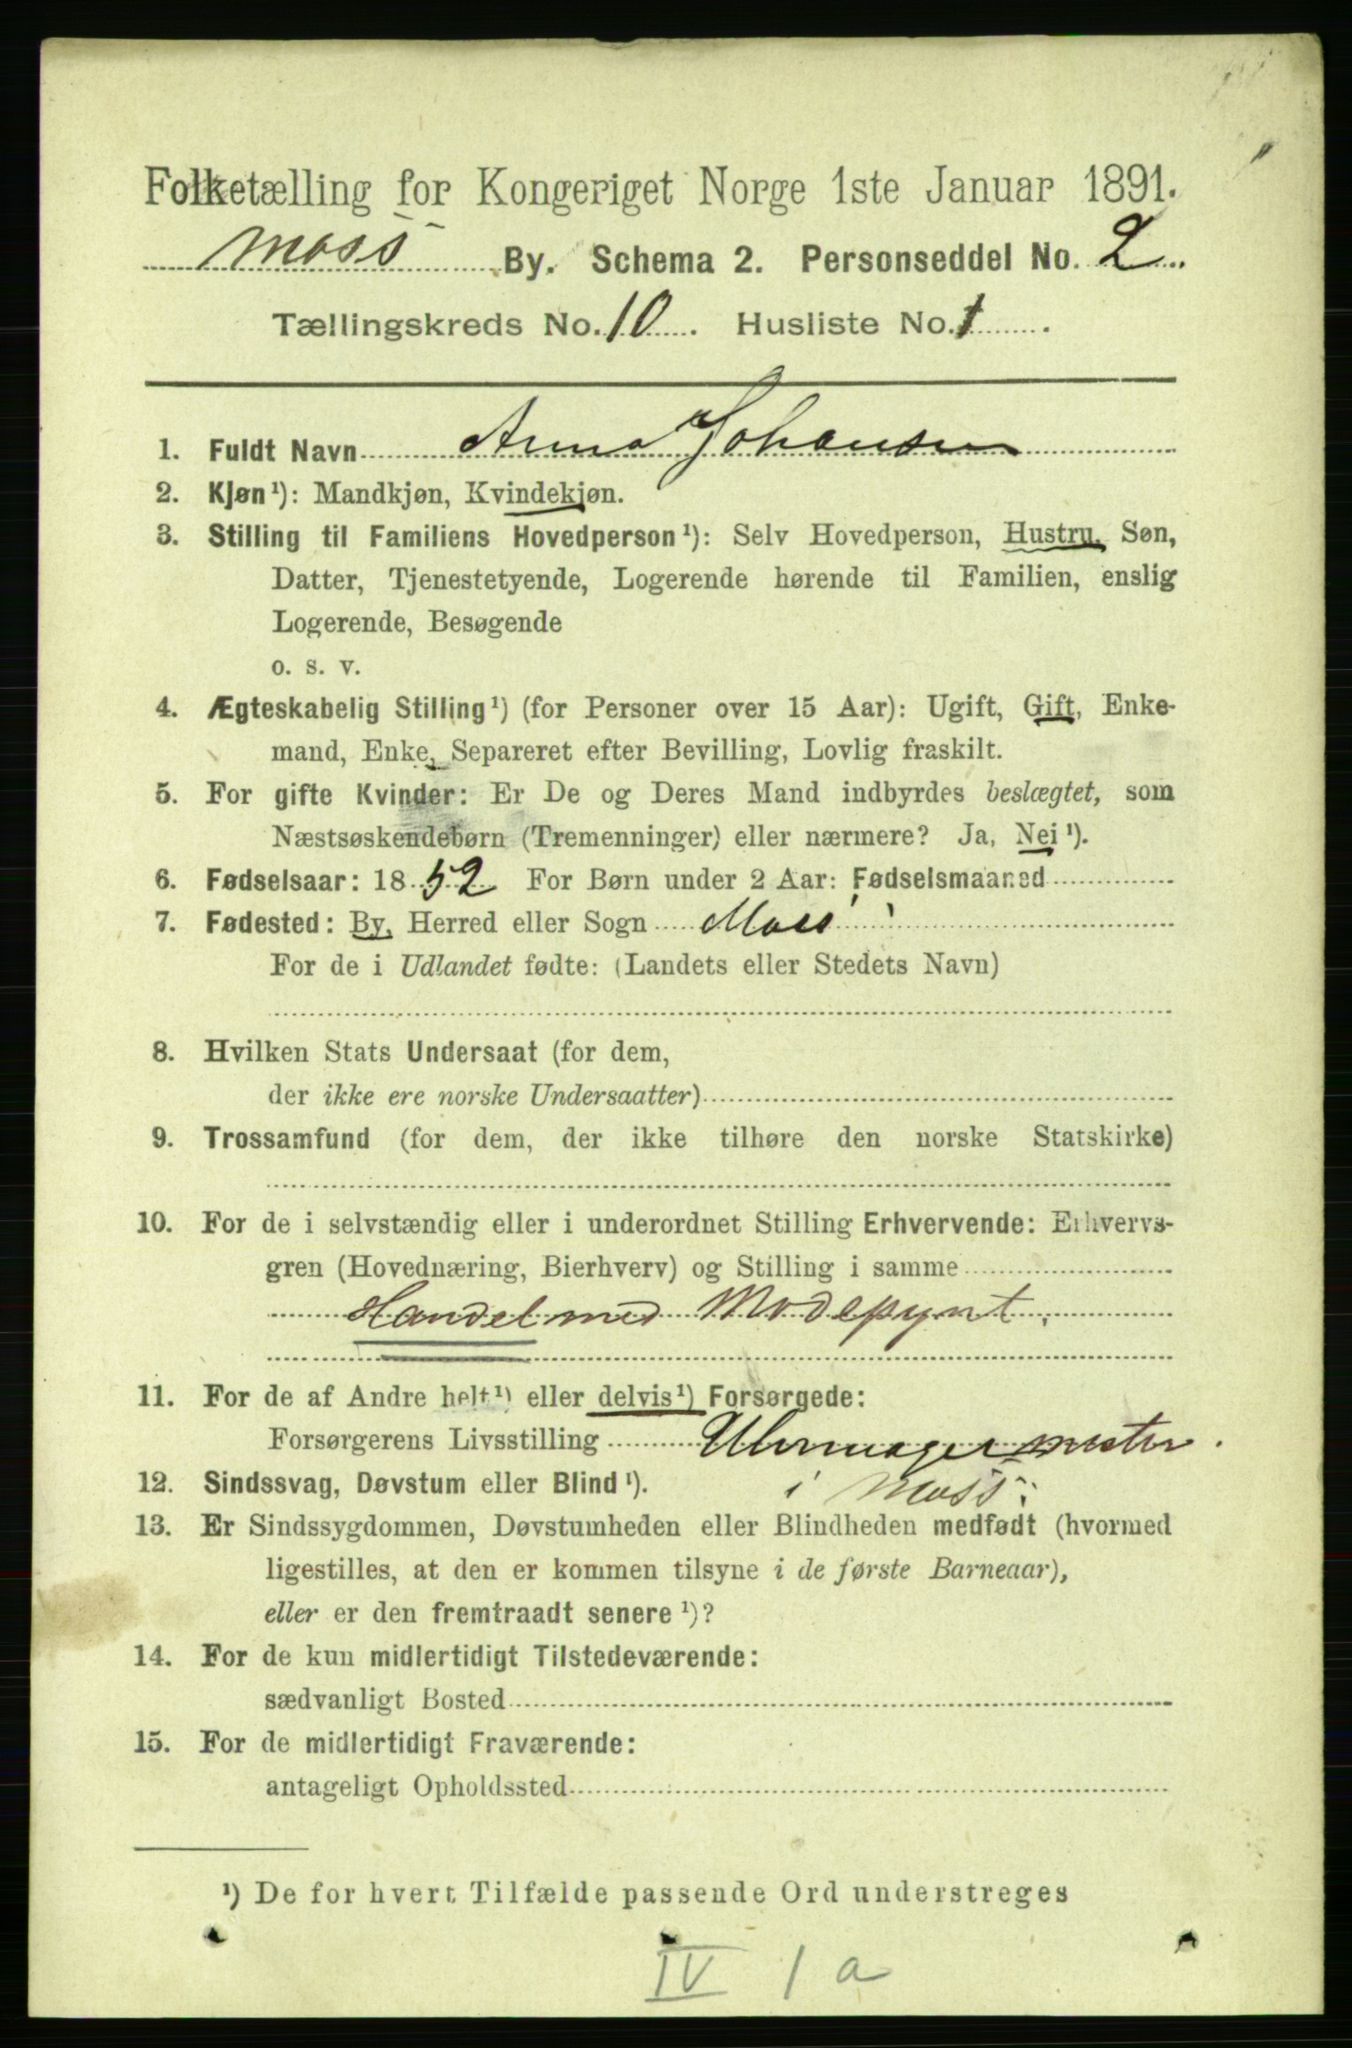 Folketælling for Kongeriget Norge 1ste Januar 1891.
Moss By. Schema 2. Personseddel No. 2
Tællingskreds No. 10. Husliste No. 1.
1. Fuldt Navn Anna Johansen
2. Kjøn¹): Mandkjøn, Kvindekjøn.
3. Stilling til Familiens Hovedperson¹): Selv Hovedperson, Hustru, Søn,
Datter, Tjenestetyende, Logerende hørende til Familien, enslig
Logerende, Besøgende
o. s. v.
4. Ægteskabelig Stilling¹) (for Personer over 15 Aar): Ugift, Gift, Enke-
mand, Enke, Separeret efter Bevilling, Lovlig fraskilt.
5. For gifte Kvinder: Er De og Deres Mand indbyrdes beslægtet, som
Næstsøskendebørn (Tremenninger) eller nærmere? Ja, Nei¹).
6. Fødselsaar: 1852 For Børn under 2 Aar: Fødselsmaaned
7. Fødested: By, Herred eller Sogn Moss
For de i Udlandet fødte: (Landets eller Stedets Navn)
8. Hvilken Stats Undersaat (for dem,
der ikke ere norske Undersaatter)
9. Trossamfund (for dem, der ikke tilhøre den norske Statskirke)
10. For de i selvstændig eller i underordnet Stilling Erhvervende: Erhvervs-
gren (Hovednæring, Bierhverv) og Stilling i samme
Handel med Modepynt.
11. For de af Andre helt¹) eller delvis¹) Forsørgede:
Forsørgerens Livsstilling Uhrmagermester.
12. Sindssvag, Døvstum eller Blind¹). i Moss.
13. Er Sindssygdommen, Døvstumheden eller Blindheden medfødt (hvormed
ligestilles, at den er kommen tilsyne i de første Barneaar),
eller er den fremtraadt senere¹)?
14. For de kun midlertidigt Tilstedeværende:
sædvanligt Bosted
15. For de midlertidigt Fraværende:
antageligt Opholdssted
¹) De for hvert Tilfælde passende Ord understreges
IV 1 a